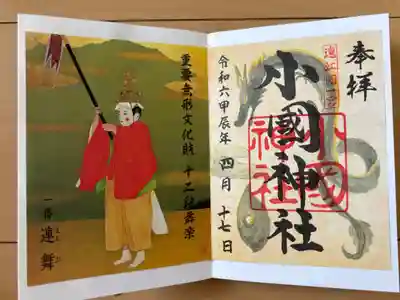 奉拝
遠江國一宮
小國神社
小國神社
令和六甲辰年 四月 十七日
重要無形文化財 十二段舞楽
一番 連舞